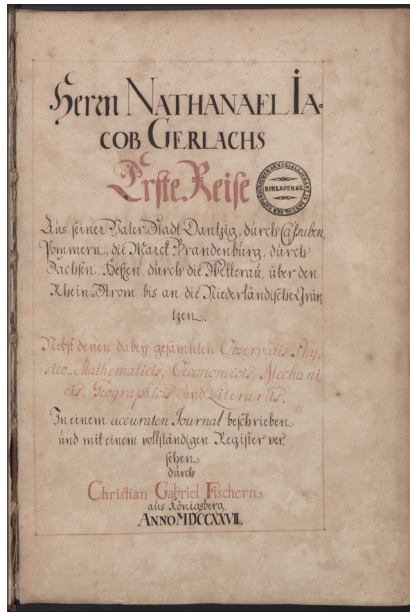 Herrn NATHANAEL IA-
COB GERLACHS
Erste Reise
BIBLIOTHEK
Aus seiner Vater-Stadt Dantzig, durch Cassuben,
Pommern, die Marck Brandenburg, durch
Sachsen, Heßen, durch die Wetterau, über den
Rhein-Strom bis an die Niederländische Grän
tzen.
Nebst denen dabey gesamleten Observatis Phy
sico-Mathematicis, Œconomicis, Mechani
cis, Geographicis und Literariis.
In einem accuraten Journal beschrieben
und mit einem vollständigen Register ver
sehen
durch
Christian Gabriel Fischern
aus Königsberg.
ANNO MDCCXXVII.